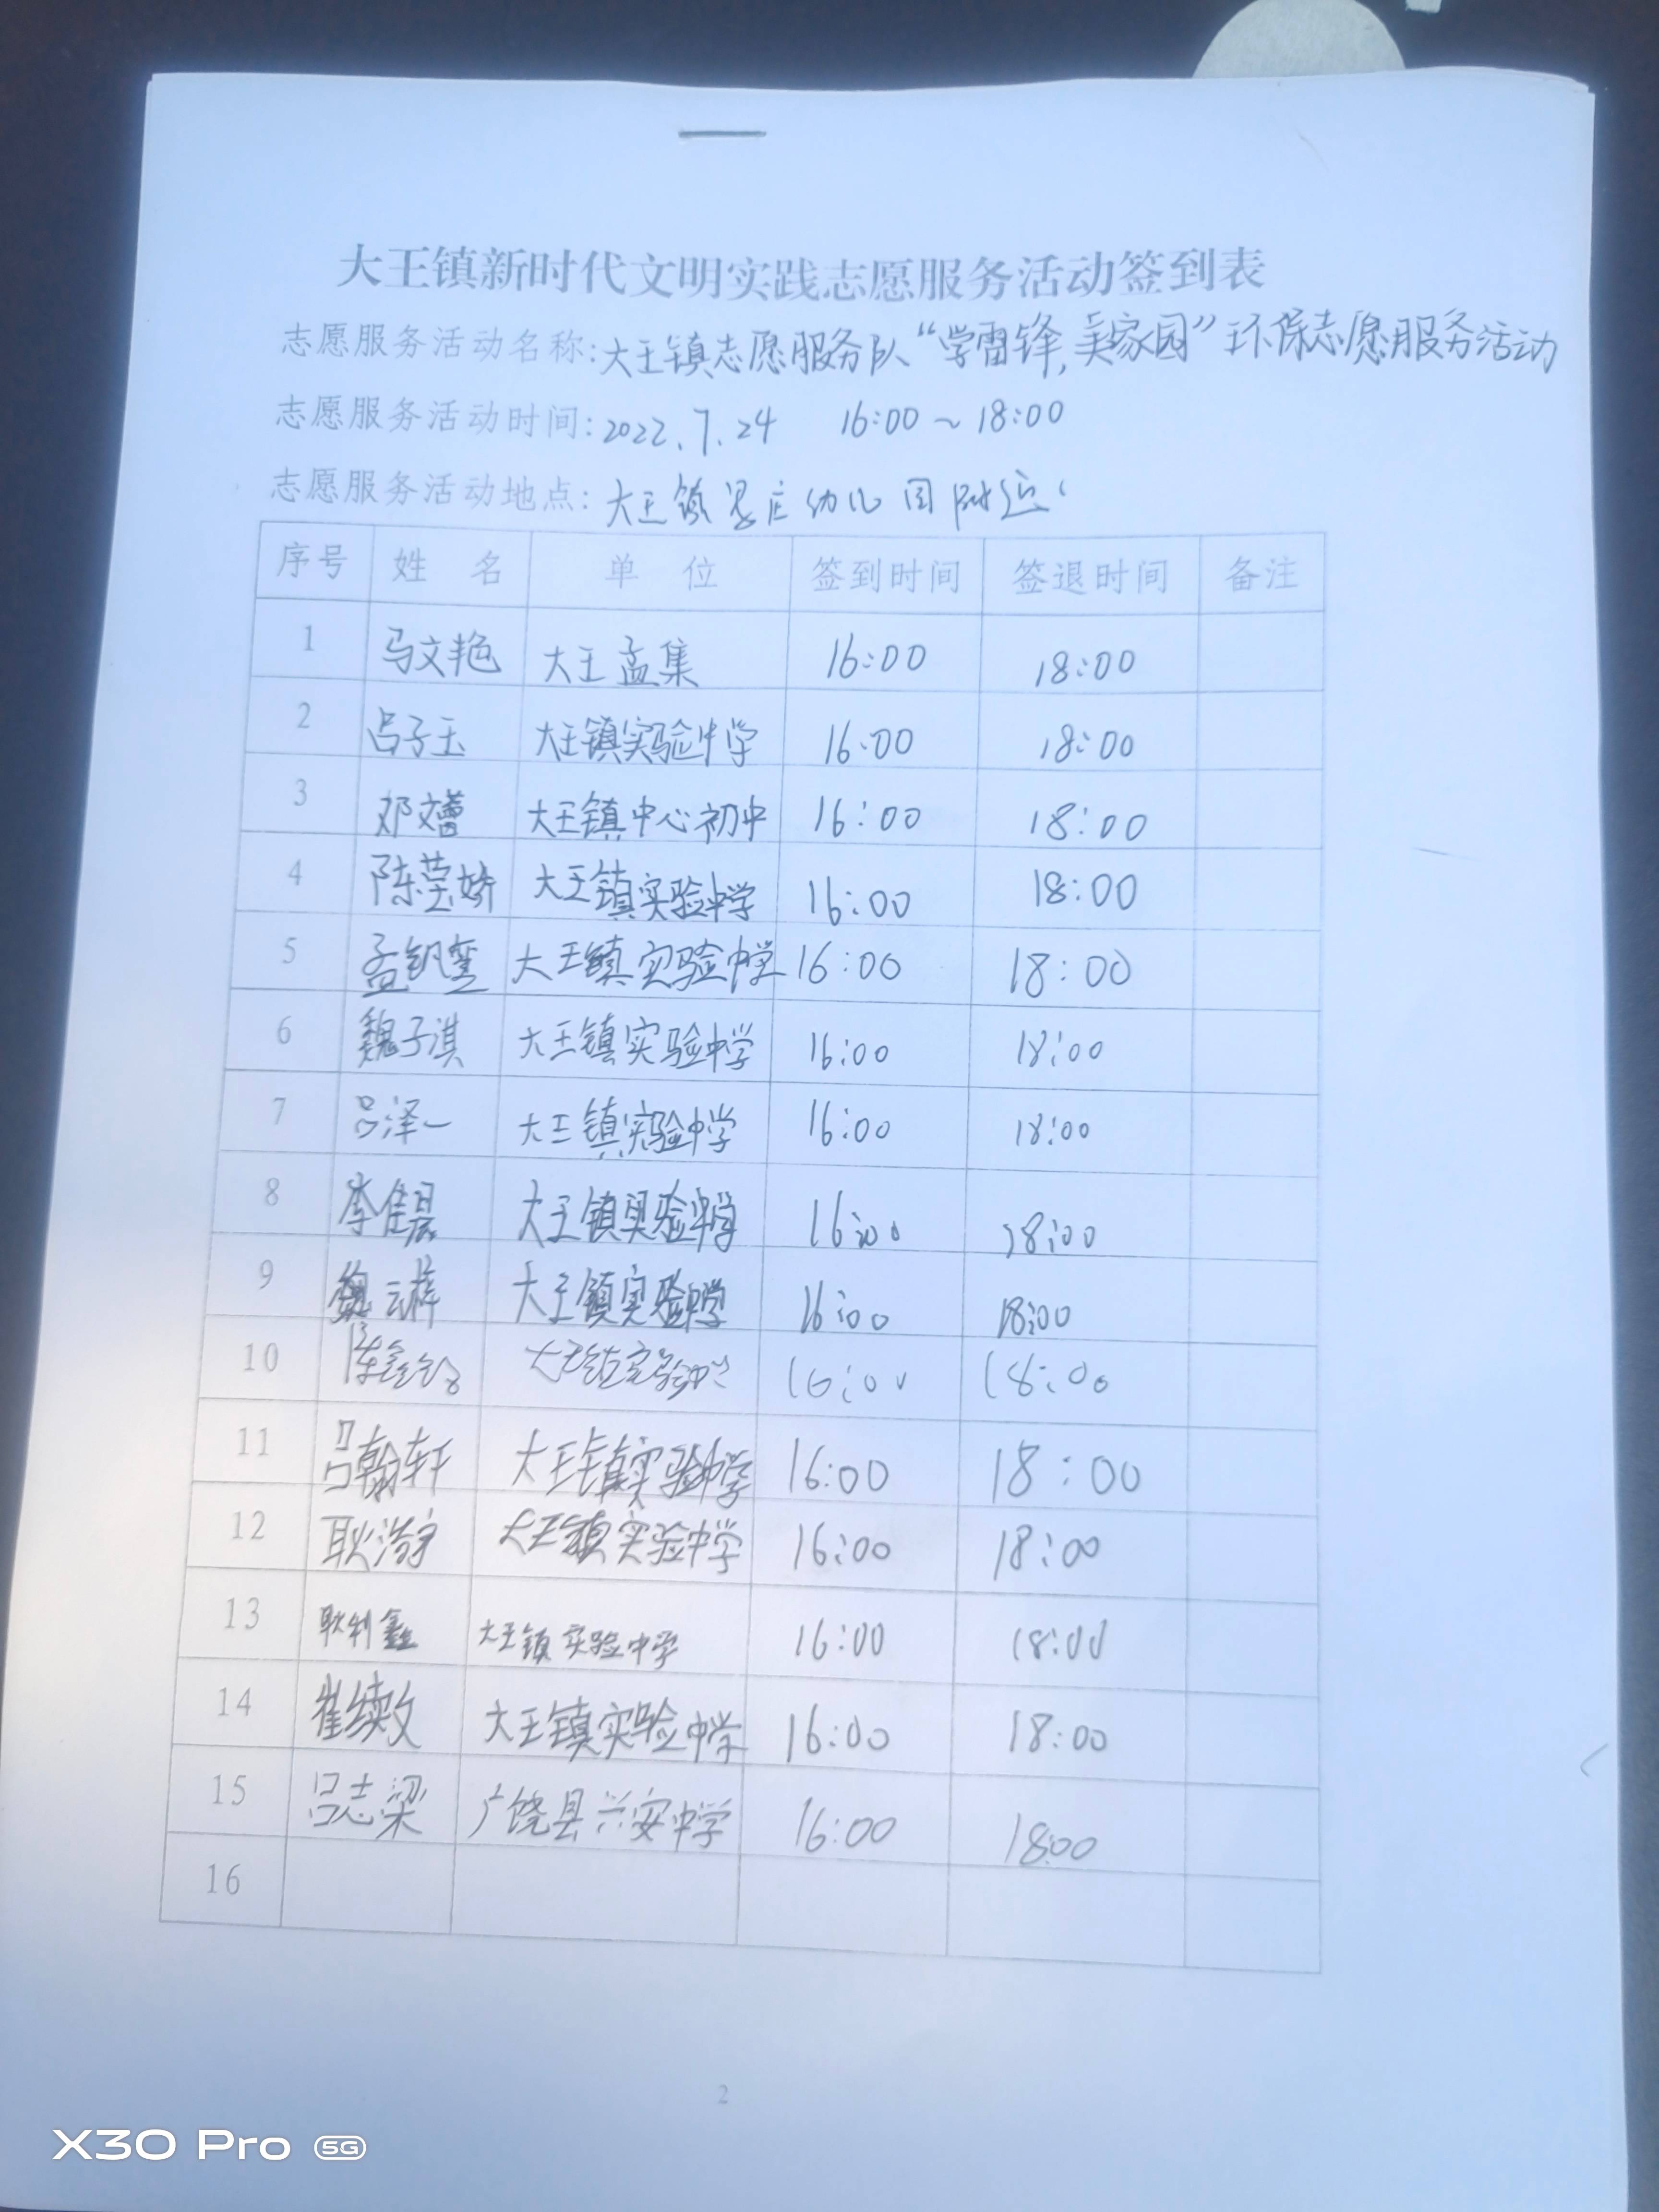 大王镇新时代文明实践志愿服务活动签到表
志愿服务活动名称:大王镇志愿服务队“学雷锋,美家园”环保志愿服务活动
志愿服务活动时间:2022.7.24 16:00~18:00
志愿服务活动地点:大王镇 庄幼儿园附近
序号 姓 名 单 位 签到时间 签退时间 备注
1 马文艳 大王孟集 16:00 18:00
2 吕子玉 大王镇实验中学 16:00 18:00
3 邓文 大王镇中心初中 16:00 18:00
4 陈莹娇 大王镇实验中学 16:00 18:00
5 孟 大王镇实验中学 16:00 18:00
6 魏子淇 大王镇实验中学 16:00 18:00
7 吕泽一 大王镇实验中学 16:00 18:00
8 李佳 大王镇实验中学 16:00 18:00
9 魏云 大王镇实验中学 16:00 18:00
10 陈鑫 大王镇实验中学 16:00 18:00
11 吕翰轩 大王镇实验中学 16:00 18:00
12 耿浩宇 大王镇实验中学 16:00 18:00
13 耿利鑫 大王镇实验中学 16:00 18:00
14 崔续文 大王镇实验中学 16:00 18:00
15 吕志梁 广饶县兴安中学 16:00 18:00
16
2
X30 Pro 5G